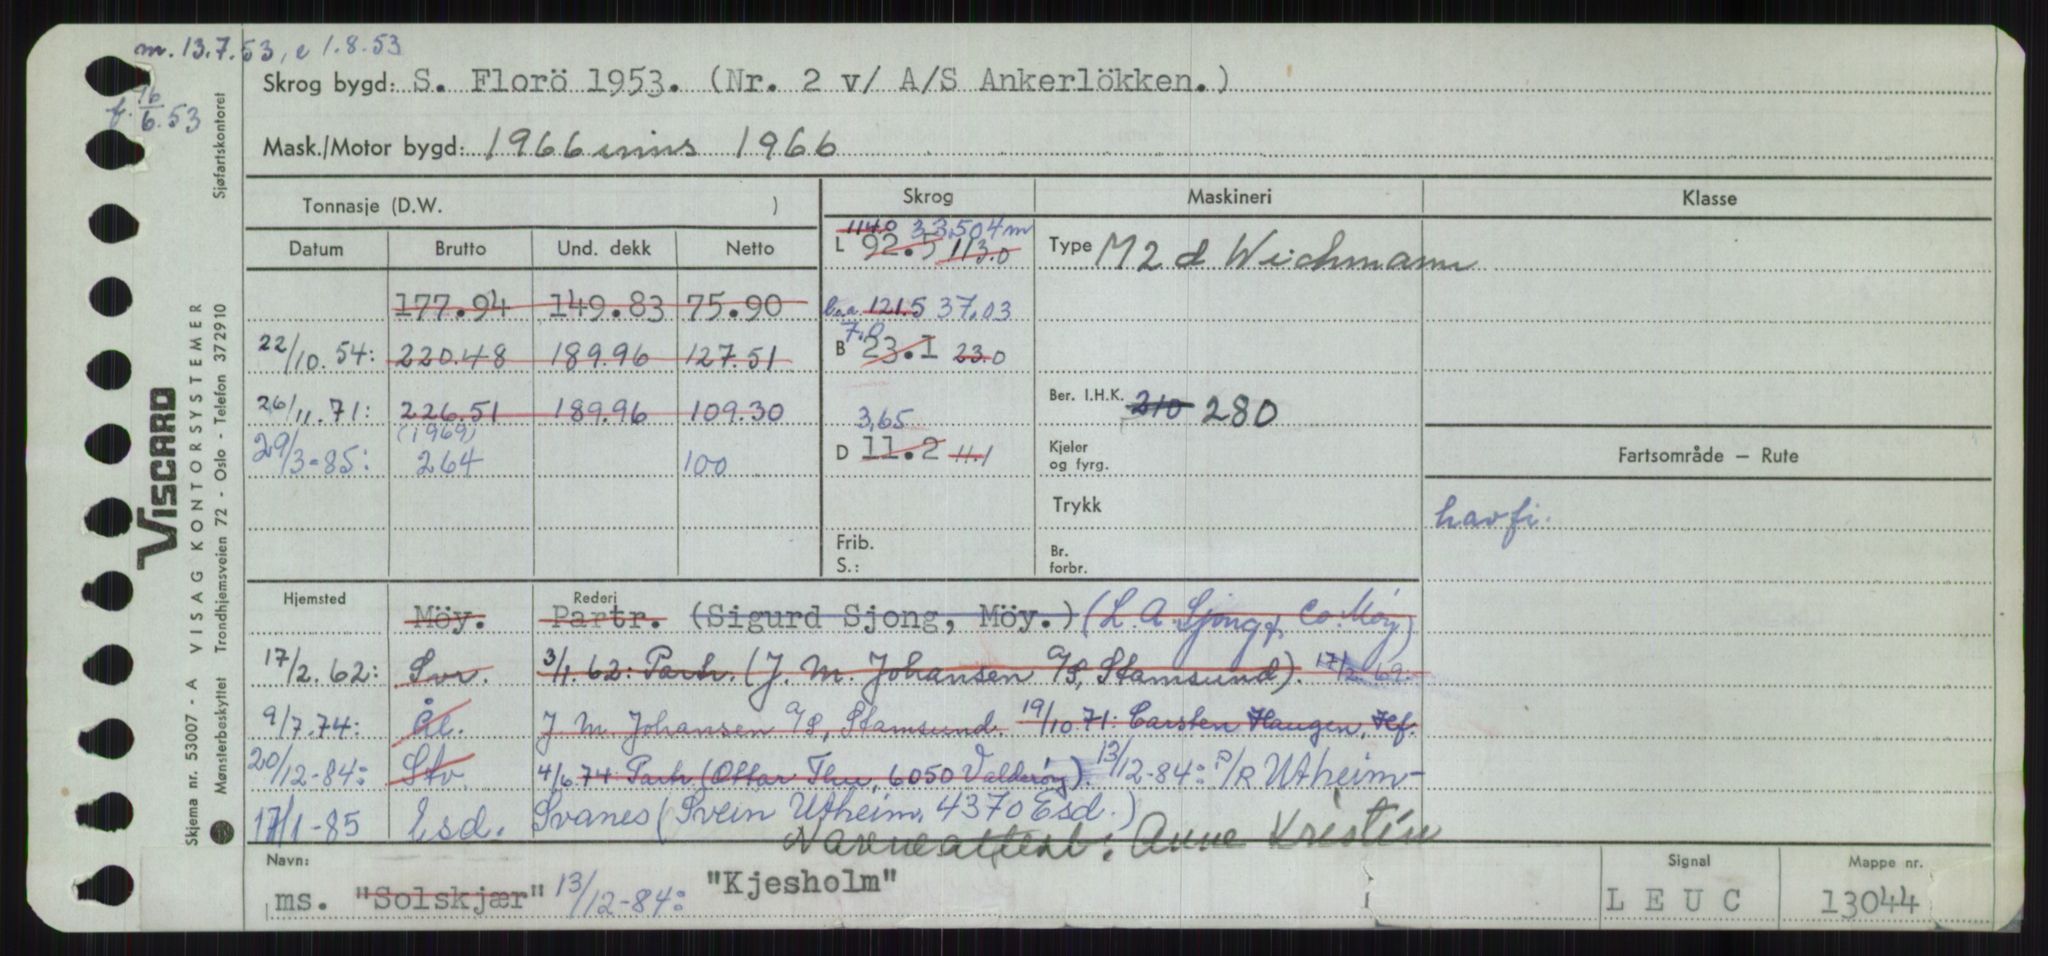 m. 13.7.53, e 1.8.53
f. 16/6.53
Skrog bygd: S. Florö 1953. (Nr. 2 v/ A/S Ankerlökken.)
Mask./Motor bygd: 1966 inns 1966
Tonnasje (D.W. ) Skrog Maskineri Klasse
Datum Brutto Und. dekk Netto
L 92.5 113.0 114.0 33,504 m
Type M2 d Wichmann
177.94 149.83 75.90
l.o.a. 121.5 37,03
22/10.54: 220.48 189.96 127.51
B 23.1 23.0 7,0
26/11.71: 226.51 189.96 109.30
Ber. I.H.K. 210 280
29/3-85: (1969) 264 100
D 11.2 11.1 3,65
Kjeler og fyrg.
Fartsområde — Rute
Trykk
havfi.
Frib.
S.:
Br. forbr.
Hjemsted Rederi
Möy. Partr. (Sigurd Sjong, Möy.) (L. A. Sjong & Co. Möy)
17/2.62: Svr. 3/1.62: Partr. (J. M. Johansen A/S, Stamsund). 17/2.69.
9/7.74: Ål. J M Johansen A/S, Stamsund 19/10.71: Carsten Haugen, Hf.
20/12-84: Stv. 4/6.74 Partr (Ottar Thu, 6050 Valderøy). 13/12-84: P/R Utheim-
17/1-85 Esd. Svanes (Svein Utheim, 4370 Esd.)
Navneattest: Anne Kristin
Navn: Signal Mappe nr.
ms. "Solskjær" 13/12-84: "Kjesholm" LEUC 13044
VISCARD
Skjema nr. 53007 - A VISAG KONTORSYSTEMER
Mønsterbeskyttet Trondhjemsveien 72 - Oslo - Telefon 372910
Sjøfartskontoret